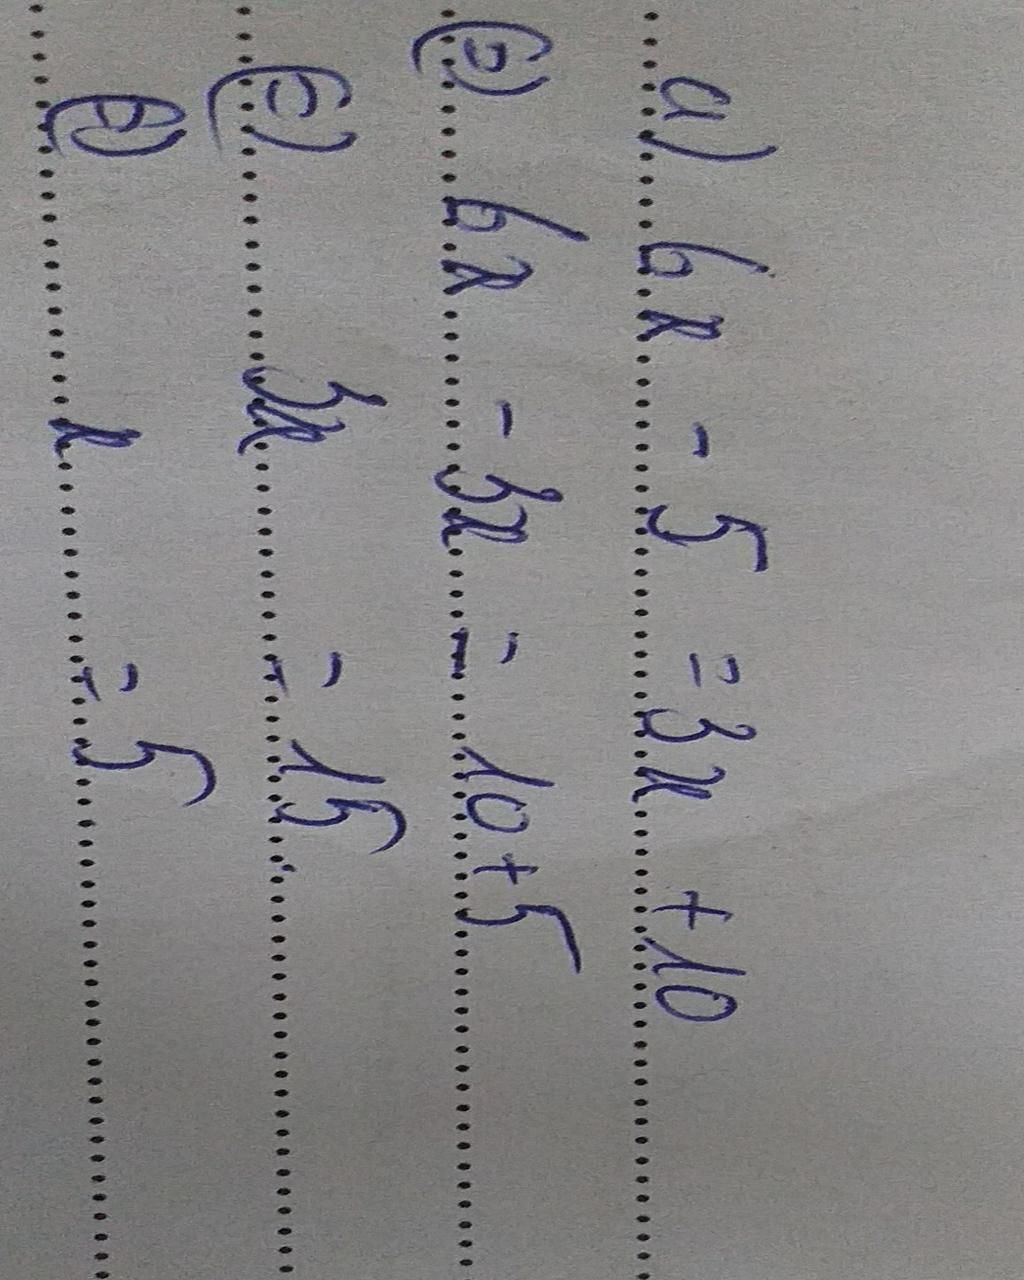 a) 6x - 5 = 3x + 10
(=) 6x - 3x = 10 + 5
(=) 3x = 15
(=) x = 5